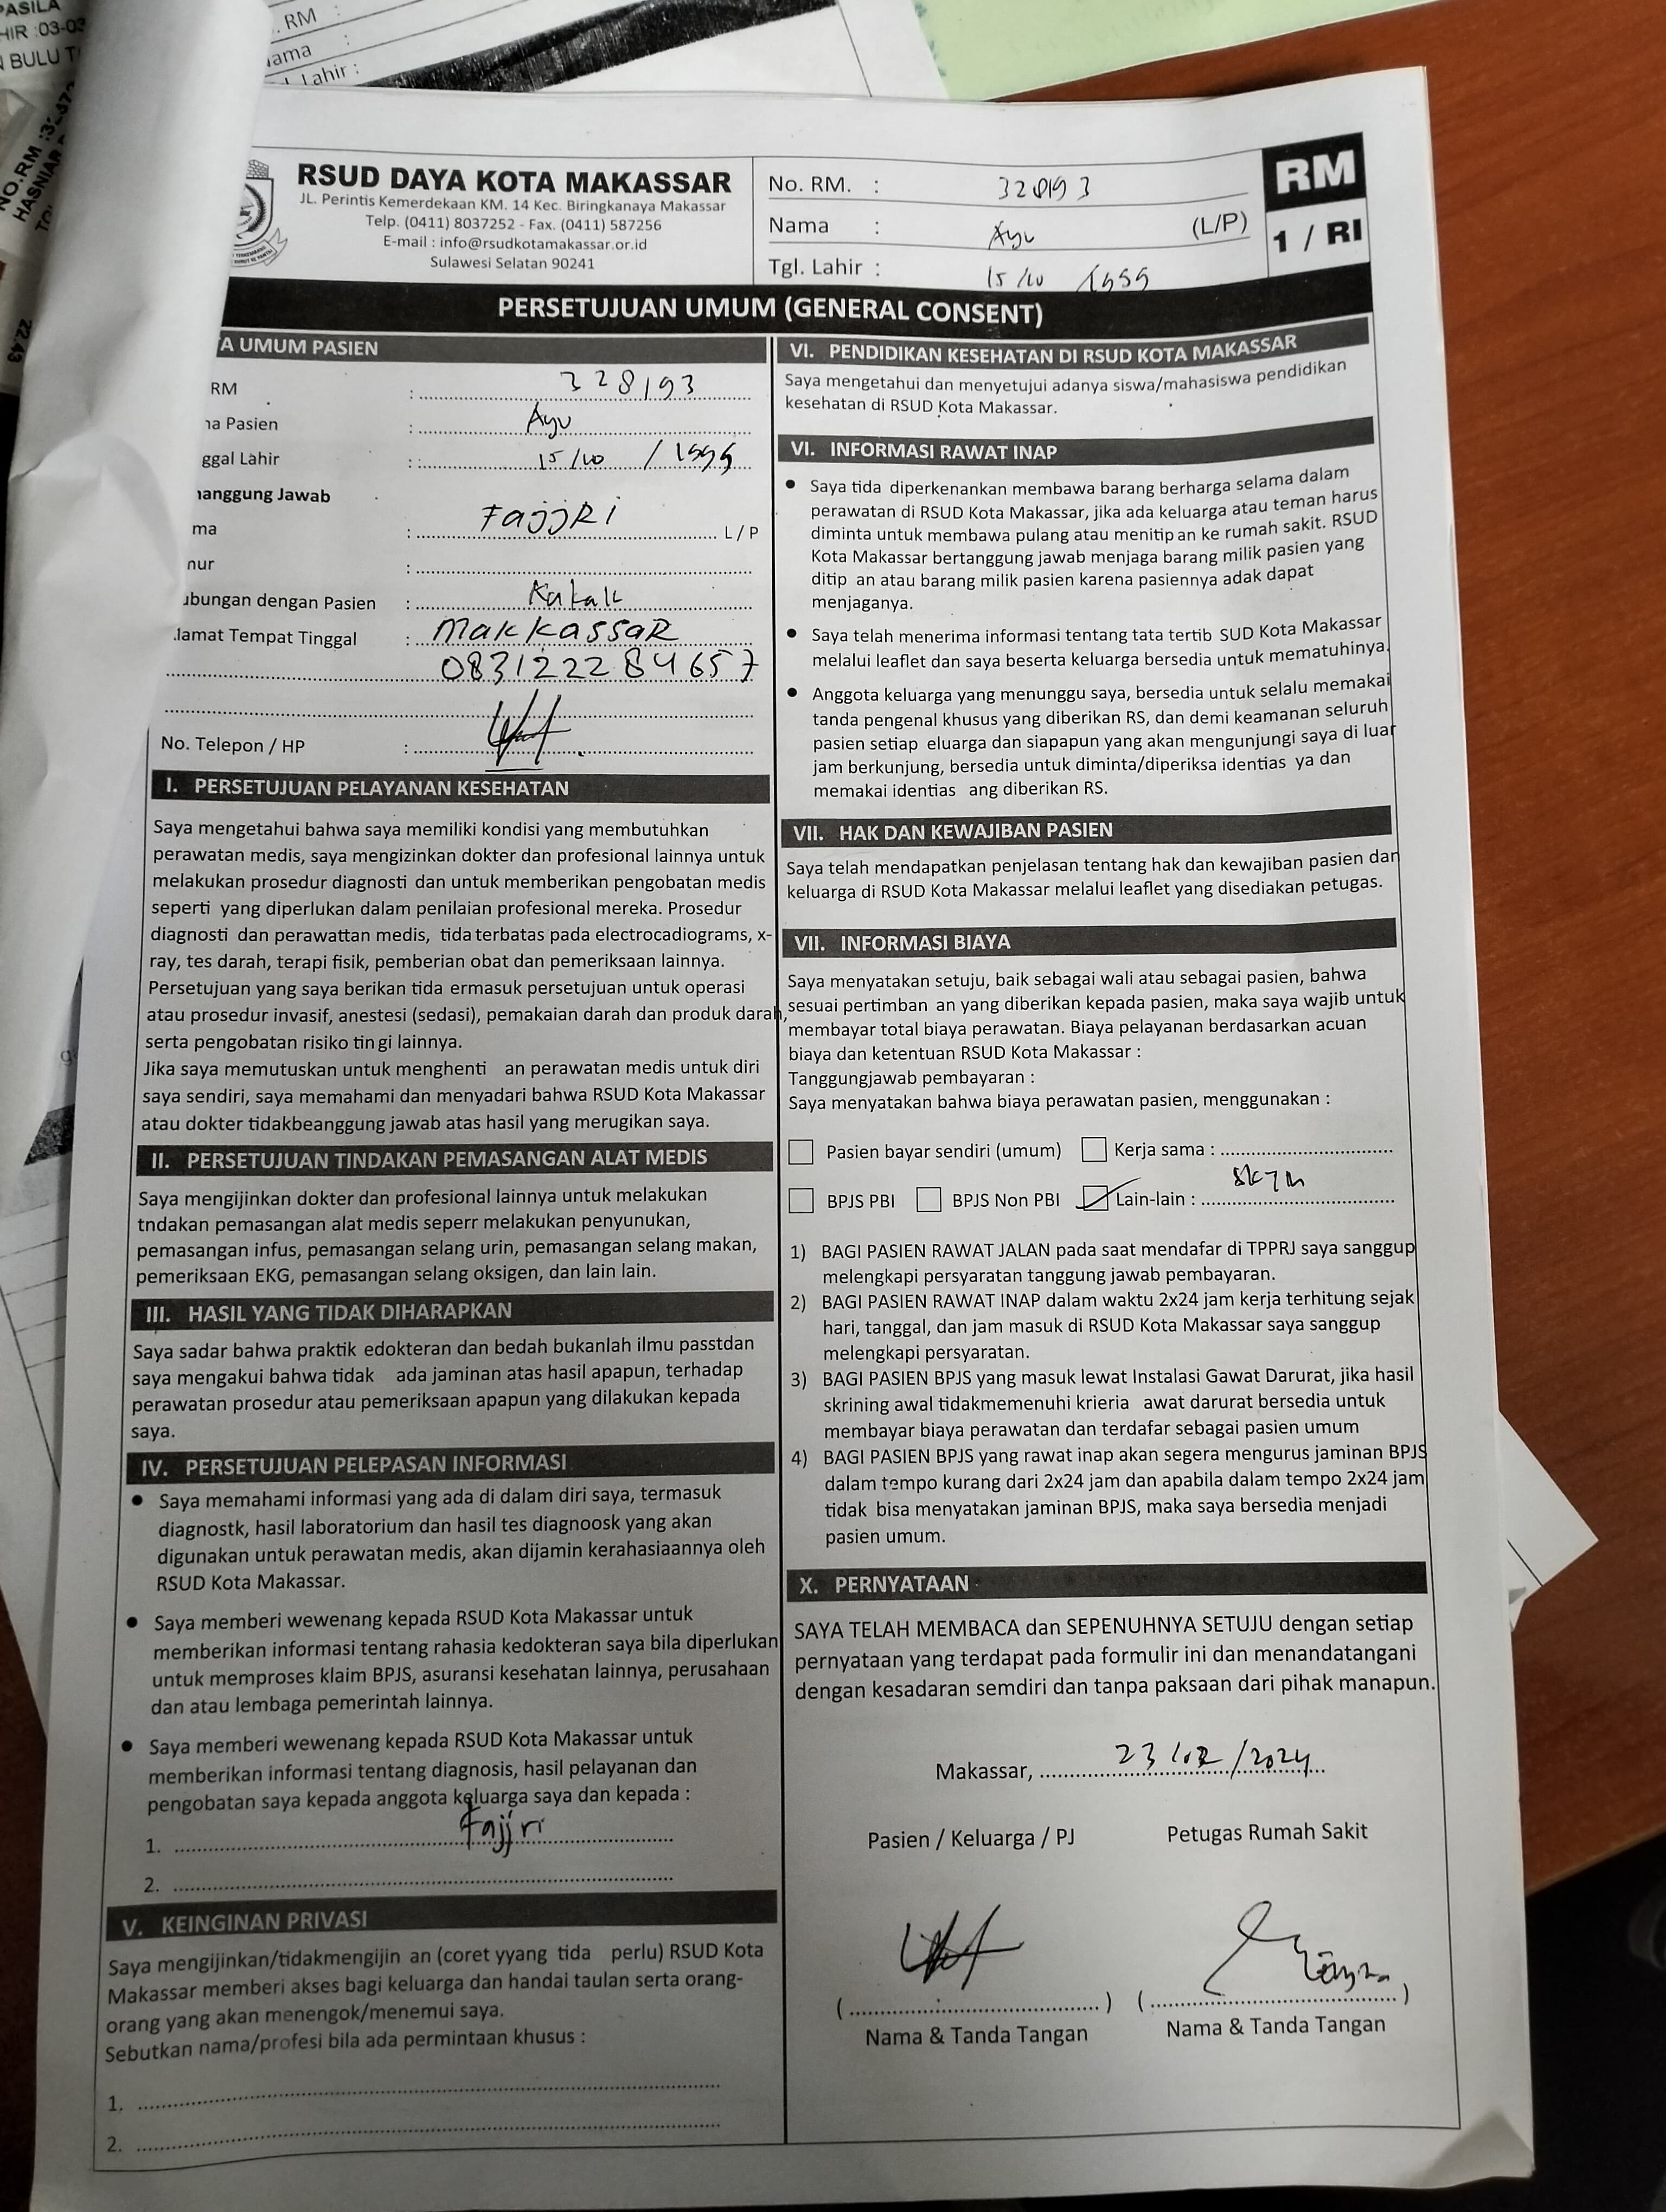 PASILA
HIR :03-03
N BULU T
NO.RM
HASNIAR
22.43
. RM :
ama :
Lahir :
RSUD DAYA KOTA MAKASSAR
JL. Perintis Kemerdekaan KM. 14 Kec. Biringkanaya Makassar
Telp. (0411) 8037252 - Fax. (0411) 587256
E-mail : info@rsudkotamakassar.or.id
Sulawesi Selatan 90241
No. RM. : 328193
Nama : Ayu (L/P)
Tgl. Lahir : 15/10
RM
1 / RI
PERSETUJUAN UMUM (GENERAL CONSENT)
A UMUM PASIEN
RM : 328193
na Pasien : Ayu
ggal Lahir : 15/10
nanggung Jawab
ma : Fajjri L / P
nur :
ubungan dengan Pasien : Kakak
lamat Tempat Tinggal : Makkassar
083122284657
No. Telepon / HP :
I. PERSETUJUAN PELAYANAN KESEHATAN
Saya mengetahui bahwa saya memiliki kondisi yang membutuhkan
perawatan medis, saya mengizinkan dokter dan profesional lainnya untuk
melakukan prosedur diagnosti dan untuk memberikan pengobatan medis
seperti yang diperlukan dalam penilaian profesional mereka. Prosedur
diagnosti dan perawattan medis, tida terbatas pada electrocadiograms, x-
ray, tes darah, terapi fisik, pemberian obat dan pemeriksaan lainnya.
Persetujuan yang saya berikan tida ermasuk persetujuan untuk operasi
atau prosedur invasif, anestesi (sedasi), pemakaian darah dan produk darah,
serta pengobatan risiko tin gi lainnya.
Jika saya memutuskan untuk menghenti an perawatan medis untuk diri
saya sendiri, saya memahami dan menyadari bahwa RSUD Kota Makassar
atau dokter tidakbeanggung jawab atas hasil yang merugikan saya.
II. PERSETUJUAN TINDAKAN PEMASANGAN ALAT MEDIS
Saya mengijinkan dokter dan profesional lainnya untuk melakukan
tndakan pemasangan alat medis seperr melakukan penyunukan,
pemasangan infus, pemasangan selang urin, pemasangan selang makan,
pemeriksaan EKG, pemasangan selang oksigen, dan lain lain.
III. HASIL YANG TIDAK DIHARAPKAN
Saya sadar bahwa praktik edokteran dan bedah bukanlah ilmu passtdan
saya mengakui bahwa tidak ada jaminan atas hasil apapun, terhadap
perawatan prosedur atau pemeriksaan apapun yang dilakukan kepada
saya.
IV. PERSETUJUAN PELEPASAN INFORMASI
• Saya memahami informasi yang ada di dalam diri saya, termasuk
diagnostk, hasil laboratorium dan hasil tes diagnoosk yang akan
digunakan untuk perawatan medis, akan dijamin kerahasiaannya oleh
RSUD Kota Makassar.
• Saya memberi wewenang kepada RSUD Kota Makassar untuk
memberikan informasi tentang rahasia kedokteran saya bila diperlukan
untuk memproses klaim BPJS, asuransi kesehatan lainnya, perusahaan
dan atau lembaga pemerintah lainnya.
• Saya memberi wewenang kepada RSUD Kota Makassar untuk
memberikan informasi tentang diagnosis, hasil pelayanan dan
pengobatan saya kepada anggota keluarga saya dan kepada :
1. Fajjri
2.
V. KEINGINAN PRIVASI
Saya mengijinkan/tidakmengijin an (coret yyang tida perlu) RSUD Kota
Makassar memberi akses bagi keluarga dan handai taulan serta orang-
orang yang akan menengok/menemui saya.
Sebutkan nama/profesi bila ada permintaan khusus :
1.
2.
VI. PENDIDIKAN KESEHATAN DI RSUD KOTA MAKASSAR
Saya mengetahui dan menyetujui adanya siswa/mahasiswa pendidikan
kesehatan di RSUD Kota Makassar.
VI. INFORMASI RAWAT INAP
• Saya tida diperkenankan membawa barang berharga selama dalam
perawatan di RSUD Kota Makassar, jika ada keluarga atau teman harus
diminta untuk membawa pulang atau menitip an ke rumah sakit. RSUD
Kota Makassar bertanggung jawab menjaga barang milik pasien yang
ditip an atau barang milik pasien karena pasiennya adak dapat
menjaganya.
• Saya telah menerima informasi tentang tata tertib SUD Kota Makassar
melalui leaflet dan saya beserta keluarga bersedia untuk mematuhinya.
• Anggota keluarga yang menunggu saya, bersedia untuk selalu memakai
tanda pengenal khusus yang diberikan RS, dan demi keamanan seluruh
pasien setiap eluarga dan siapapun yang akan mengunjungi saya di luar
jam berkunjung, bersedia untuk diminta/diperiksa identias ya dan
memakai identias ang diberikan RS.
VII. HAK DAN KEWAJIBAN PASIEN
Saya telah mendapatkan penjelasan tentang hak dan kewajiban pasien dan
keluarga di RSUD Kota Makassar melalui leaflet yang disediakan petugas.
VII. INFORMASI BIAYA
Saya menyatakan setuju, baik sebagai wali atau sebagai pasien, bahwa
sesuai pertimban an yang diberikan kepada pasien, maka saya wajib untuk
membayar total biaya perawatan. Biaya pelayanan berdasarkan acuan
biaya dan ketentuan RSUD Kota Makassar :
Tanggungjawab pembayaran :
Saya menyatakan bahwa biaya perawatan pasien, menggunakan :
Pasien bayar sendiri (umum) Kerja sama :
BPJS PBI BPJS Non PBI Lain-lain :
1) BAGI PASIEN RAWAT JALAN pada saat mendafar di TPPRJ saya sanggup
melengkapi persyaratan tanggung jawab pembayaran.
2) BAGI PASIEN RAWAT INAP dalam waktu 2x24 jam kerja terhitung sejak
hari, tanggal, dan jam masuk di RSUD Kota Makassar saya sanggup
melengkapi persyaratan.
3) BAGI PASIEN BPJS yang masuk lewat Instalasi Gawat Darurat, jika hasil
skrining awal tidakmemenuhi krieria awat darurat bersedia untuk
membayar biaya perawatan dan terdafar sebagai pasien umum
4) BAGI PASIEN BPJS yang rawat inap akan segera mengurus jaminan BPJS
dalam tempo kurang dari 2x24 jam dan apabila dalam tempo 2x24 jam
tidak bisa menyatakan jaminan BPJS, maka saya bersedia menjadi
pasien umum.
X. PERNYATAAN
SAYA TELAH MEMBACA dan SEPENUHNYA SETUJU dengan setiap
pernyataan yang terdapat pada formulir ini dan menandatangani
dengan kesadaran semdiri dan tanpa paksaan dari pihak manapun.
Makassar, 23/02/2024
Pasien / Keluarga / PJ Petugas Rumah Sakit
Nama & Tanda Tangan Nama & Tanda Tangan